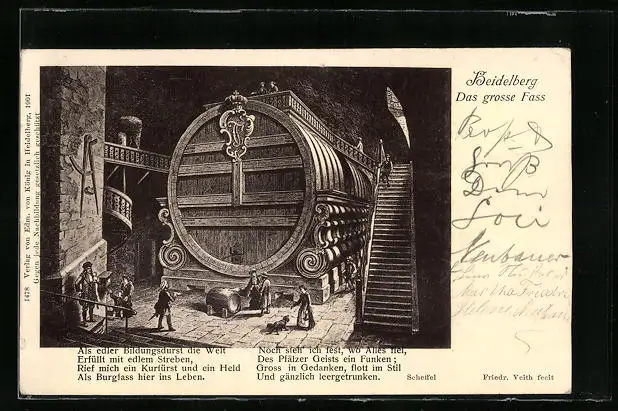 Heidelberg
Das grosse Fass
1478 Verlag von Edm. von König in Heidelberg, 1901
Gegen jede Nachbildung gesetzlich geschützt
Gruß
Neubauer
Als edler Bildungsdurst die Welt
Erfüllt mit edlem Streben,
Rief mich ein Kurfürst und ein Held
Als Burgfass hier ins Leben.
Noch steh' ich fest, wo Alles fiel,
Des Pfälzer Geists ein Funken;
Gross in Gedanken, flott im Stil
Und gänzlich leergetrunken.
Scheffel
Friedr. Veith fecit